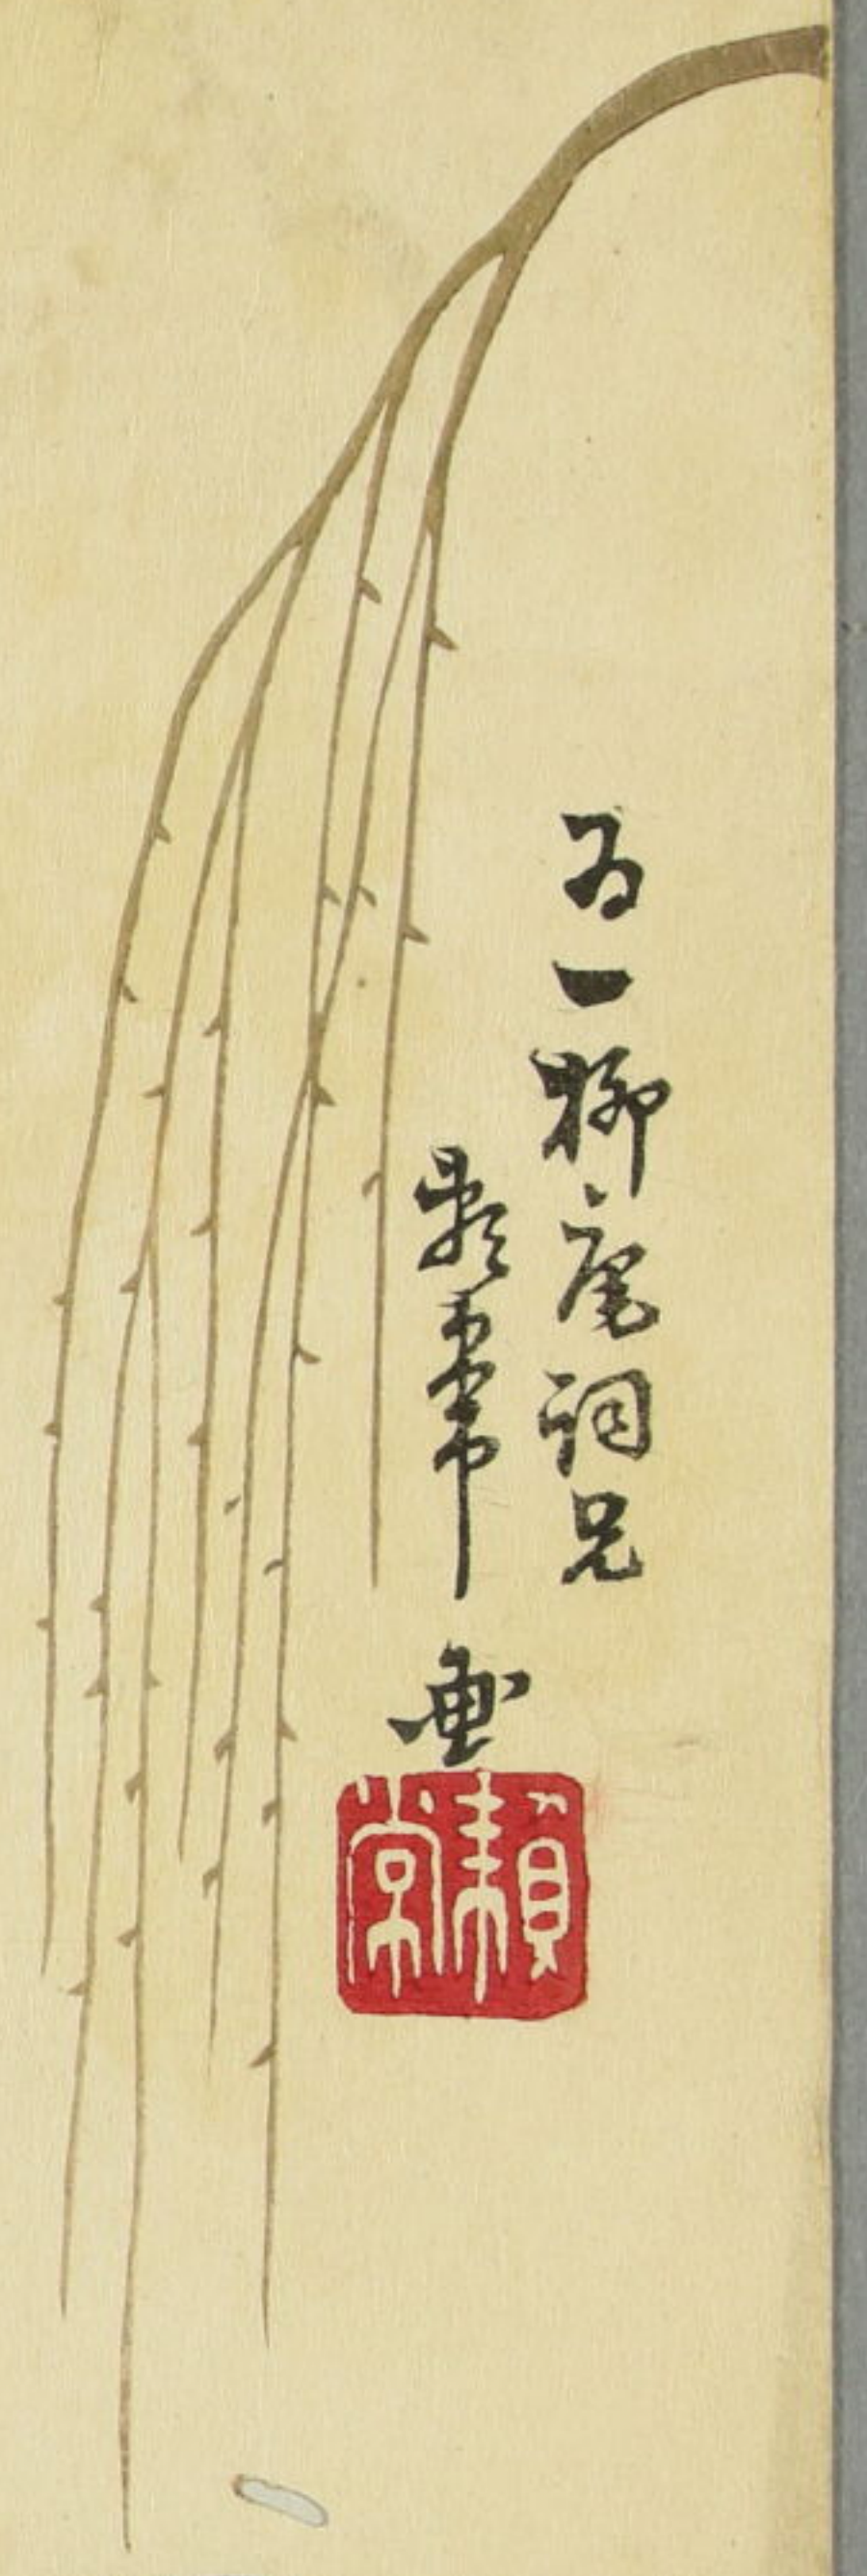 為一柳庵詞兄
画
頼常